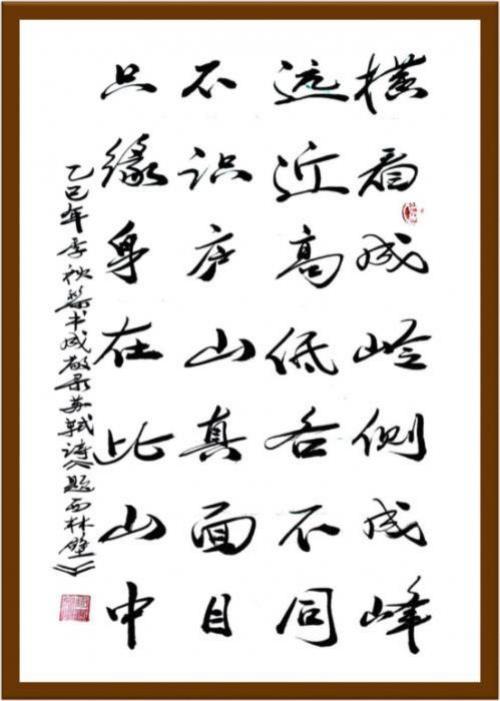 横看成岭侧成峰
远近高低各不同
不识庐山真面目
只缘身在此山中
乙巳年季秋书成敬录苏轼诗《题西林壁》